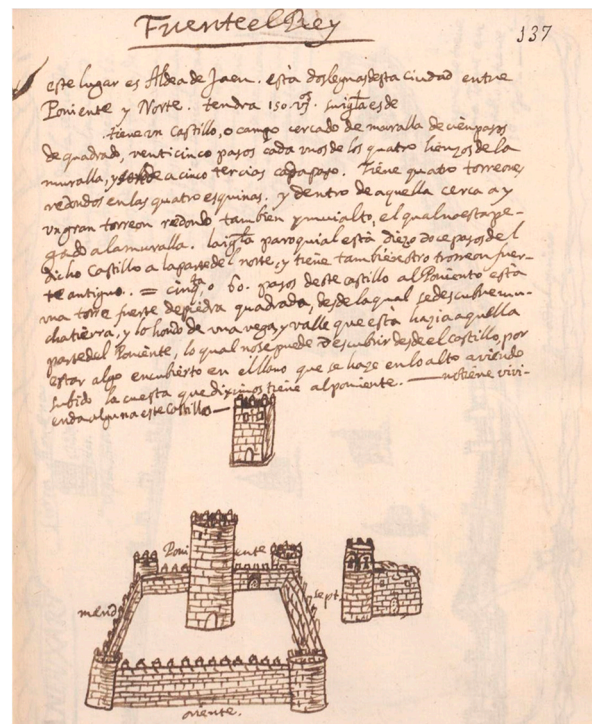 Fuente el Rey
137
este lugar es Aldea de Jaen. està dos leguas desta ciudad entre
Poniente y Norte. tendra 150. vºs. su iglª es de
. tiene vn Castillo, o campo cercado de muralla de cien pasos
de quadrado, venticinco pasos cada vno de los quatro lienzos de la
muralla, y a cinco tercias cada paso. Tiene quatro torreones
redondos en las quatro esquinas. y dentro de aquella cerca ay
vn gran torreon redondo tambien y mui alto, el qual no esta pe-
gado a la muralla. la iglª paroquial està diez o doce pasos del
dicho Castillo a la parte del norte, y tiene tambien otro torreon fuer-
te antiguo. = cinqta, o 60. pasos deste castillo al Poniente està
vna torre fuerte de piedra quadrada, desde la qual se descubre mu-
cha tierra, y lo hondo de vna vega, y valle que està hazia aquella
parte del Poniente, lo qual no se puede descubrir desde el castillo, por
estar algo encubierto en el llano que se haze en lo alto aviendo
subido la cuesta que diximos tiene al poniente. — no tiene vivi-
enda alguna este castillo —
Poni ente
merid
sept.
oriente.